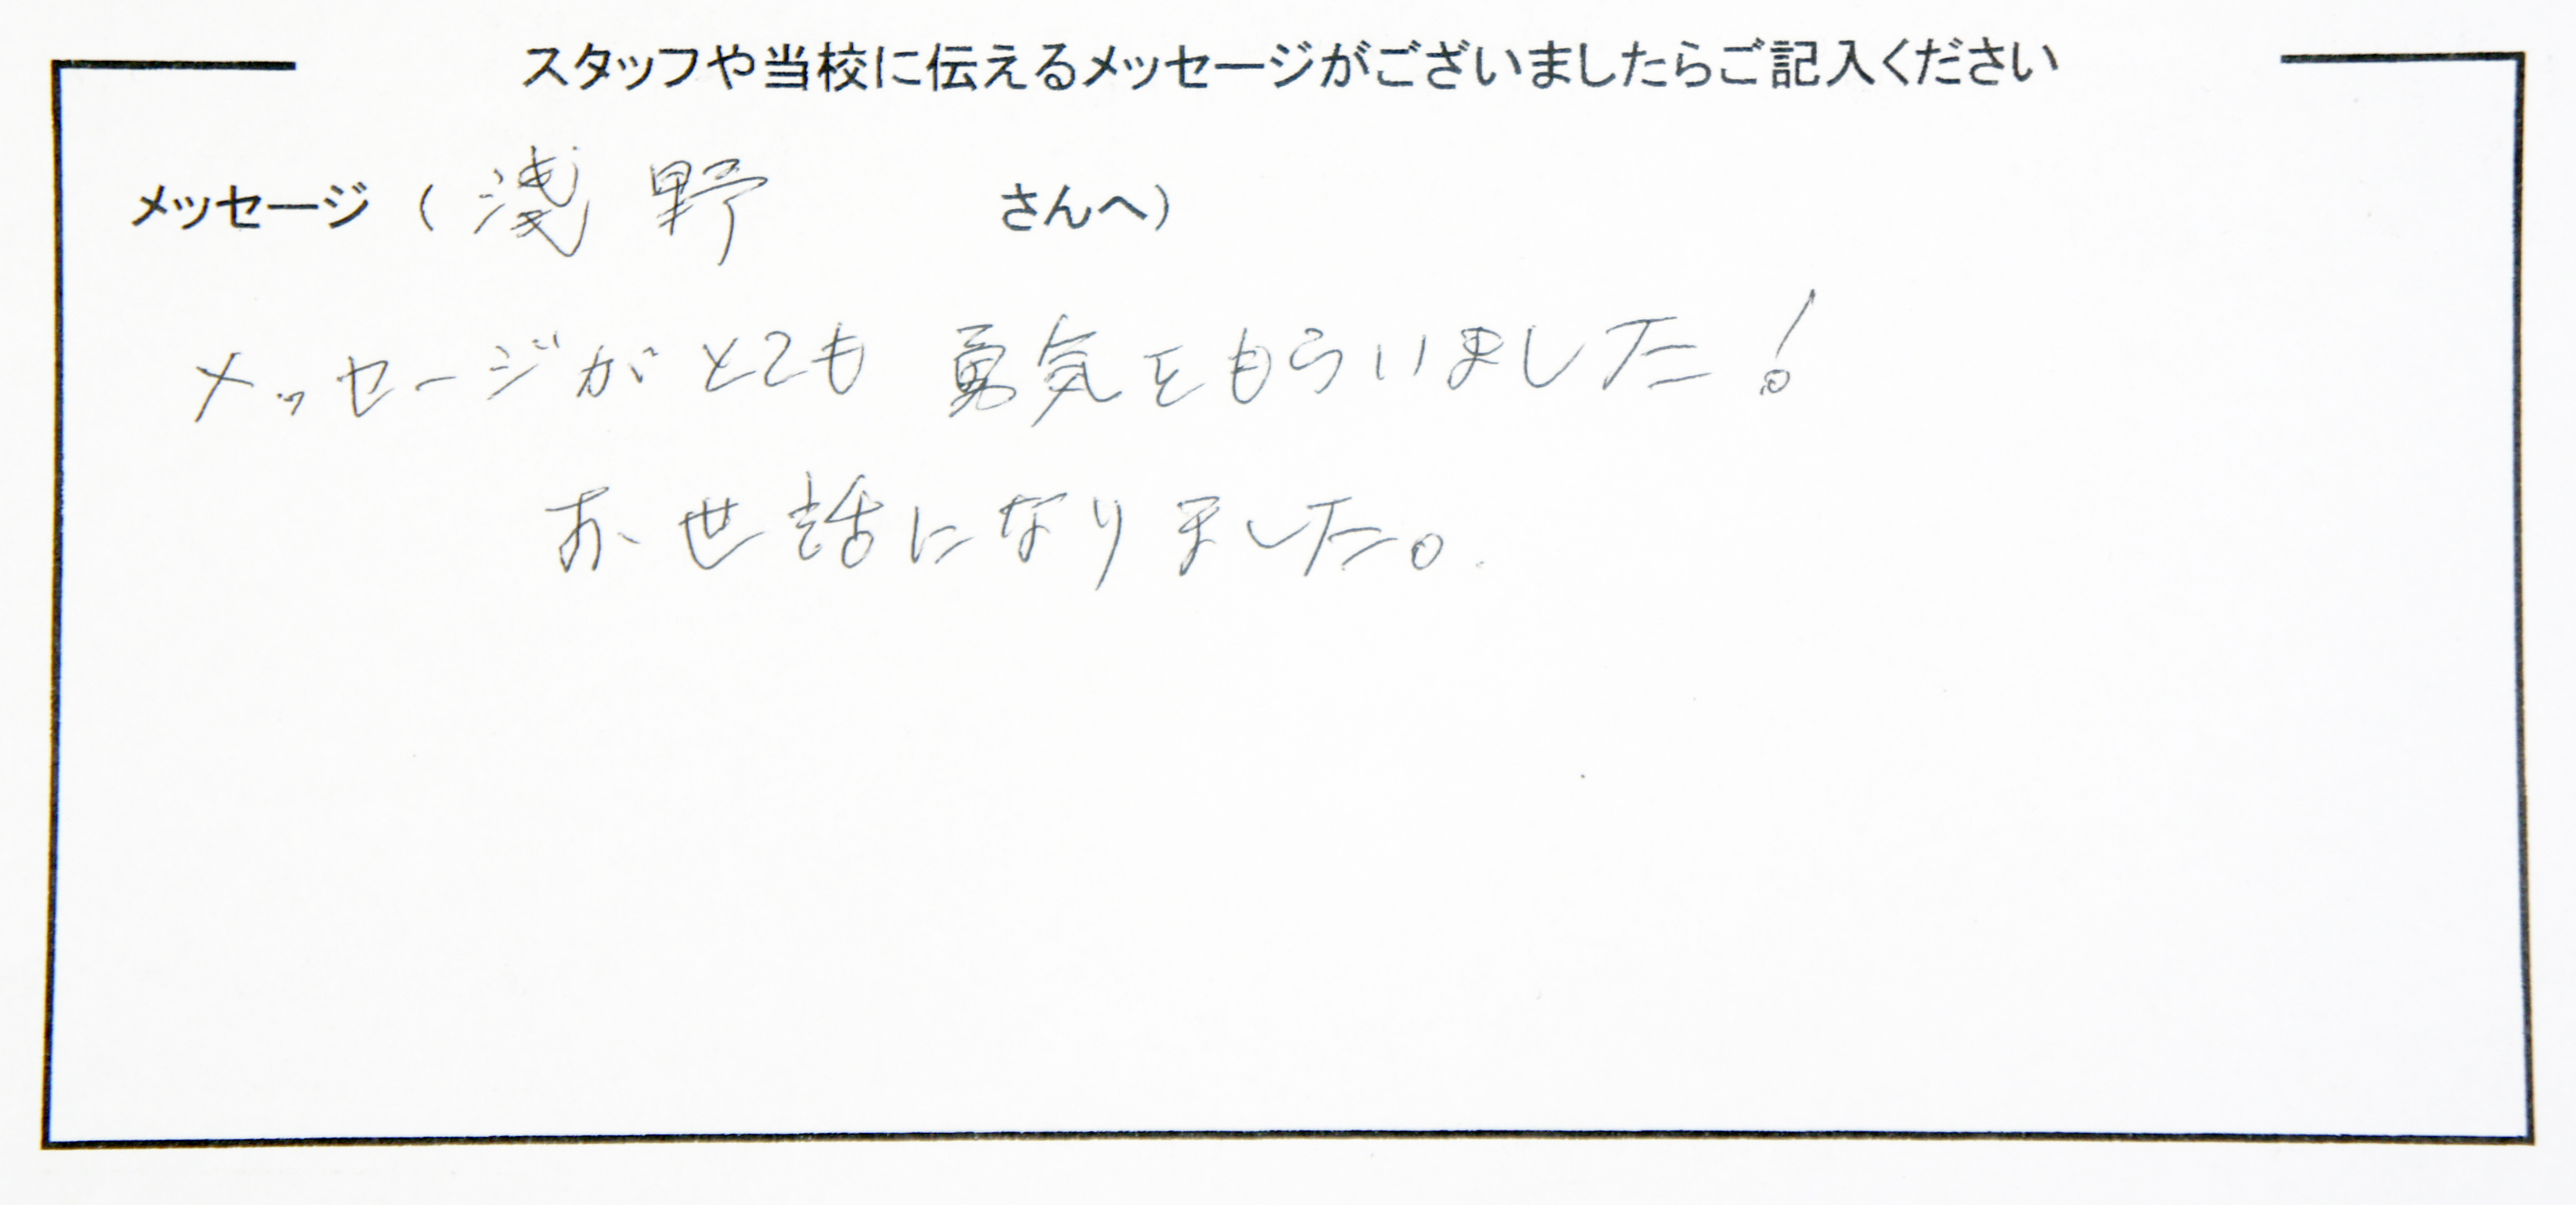 スタッフや当校に伝えるメッセージがございましたらご記入ください
メッセージ（ 浅野 さんへ）
メッセージがとても 勇気をもらいました！
お世話になりました。